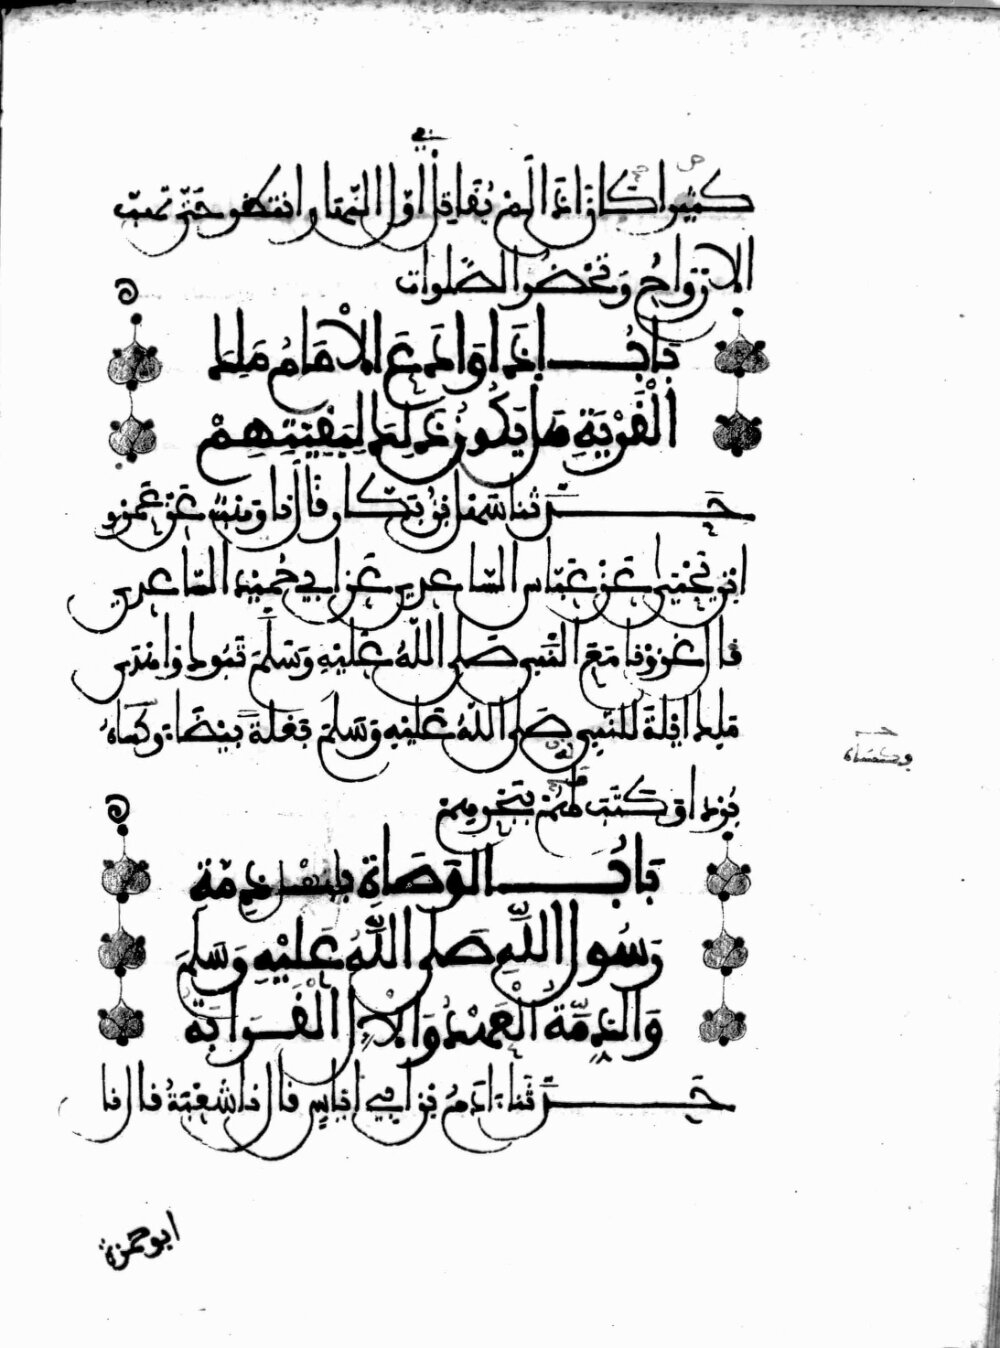 في
كثيرا كان اذا لم يقاتل اول النهار انتظر حتى تهب
الارواح وتحضر الصلوات
باب اذا وادع الامام ملك
القرية هل يكون ذلك لبقيتهم
حدثنا سهل بن بكار قال نا وهيب عن عمرو
ابن يحيى عن عباس الساعدي عن ابي حميد الساعدي
قال غزونا مع النبي صلى الله عليه وسلم تبوك واهدى
ملك ايلة للنبي صلى الله عليه وسلم بغلة بيضاء وكساه
وكساه
بردا وكتب لهم ببحرهم
باب الوصاة باهل ذمة
رسول الله صلى الله عليه وسلم
والذمة العهد والال القرابة
حدثنا ادم بن ابي اياس قال نا شعبة قال نا
ابو جمرة